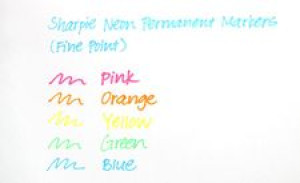 Sharpie Neon Permanent Markers
(Fine Point)
Pink
Orange
Yellow
Green
Blue